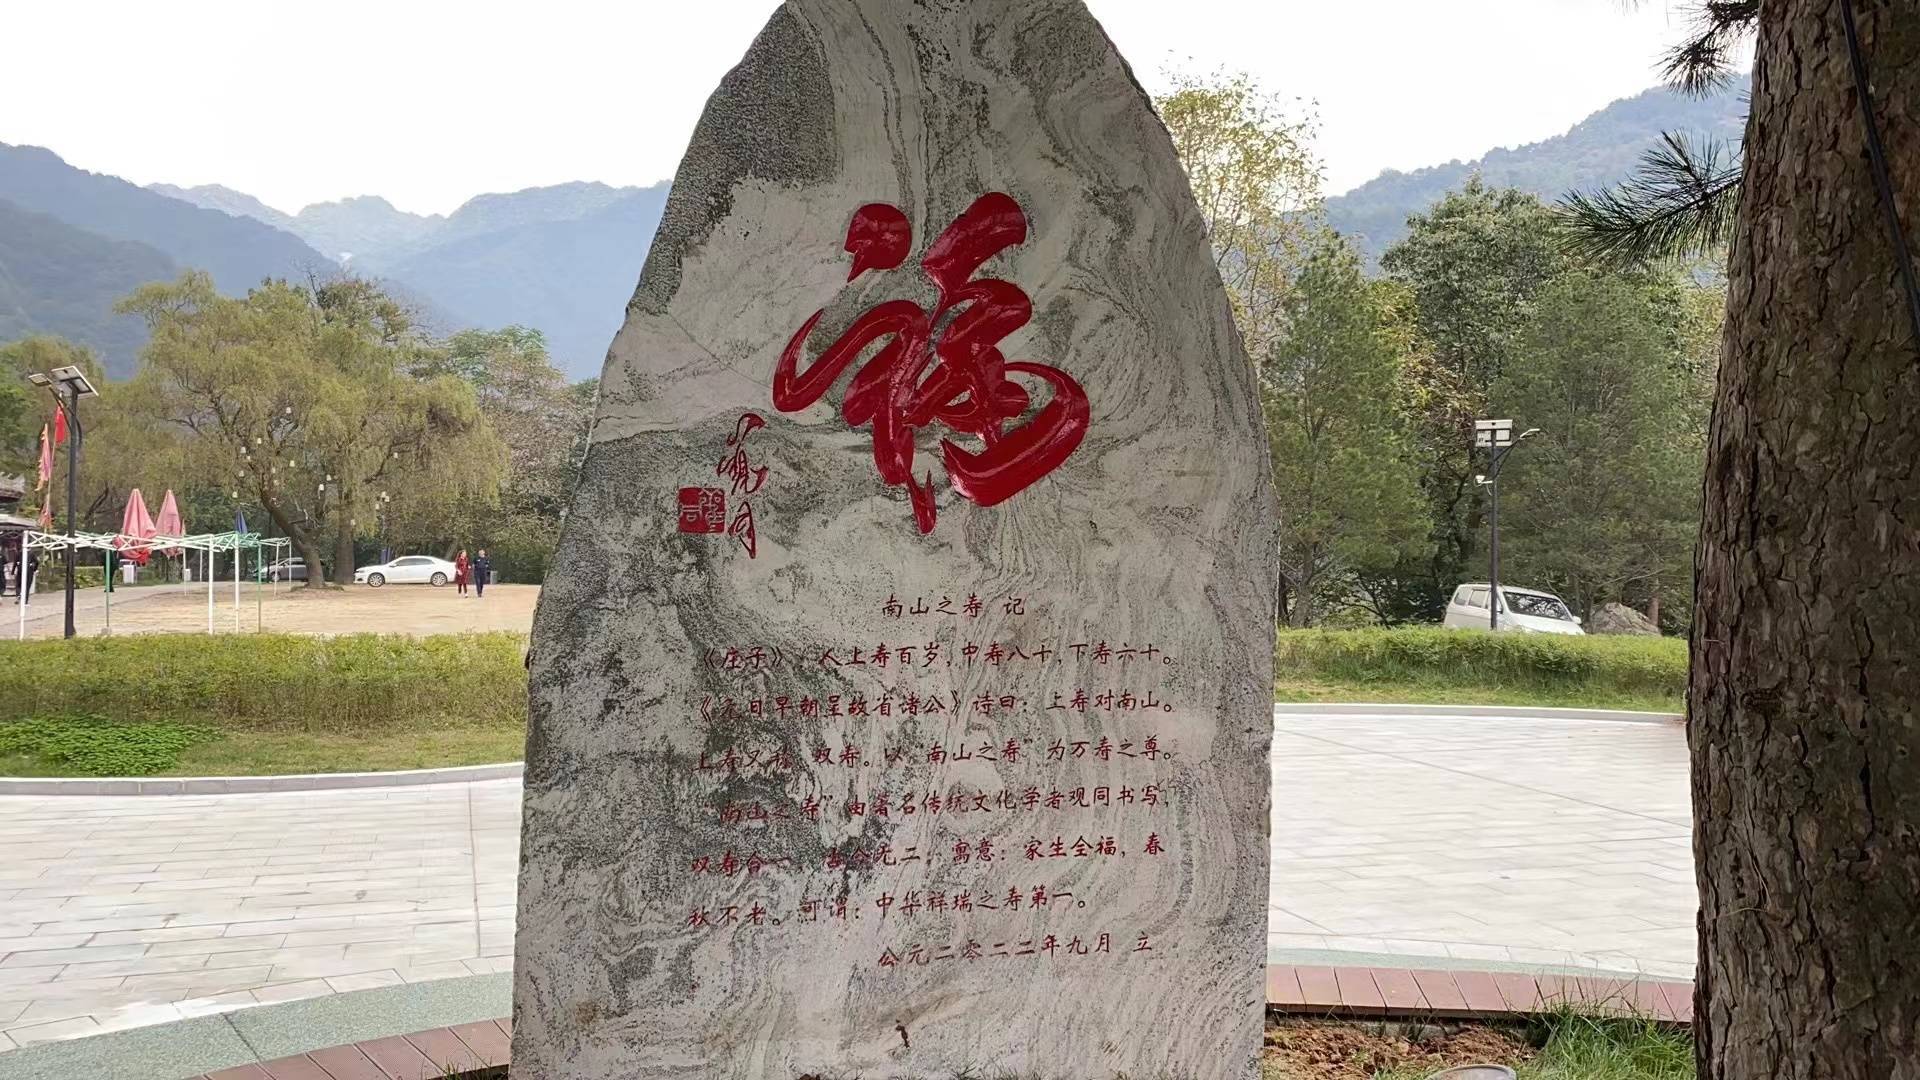 福
观同
南山之寿 记
《庄子》：人上寿百岁，中寿八十，下寿六十。
《元日早朝呈故省诸公》诗曰：上寿对南山。
上寿又称 双寿。以“南山之寿”为万寿之尊。
“南山之寿”由著名传统文化学者观同书写，
双寿合一 古今无二。寓意：家生全福，春
秋不老。可谓：中华祥瑞之寿第一。
公元二零二二年九月 立